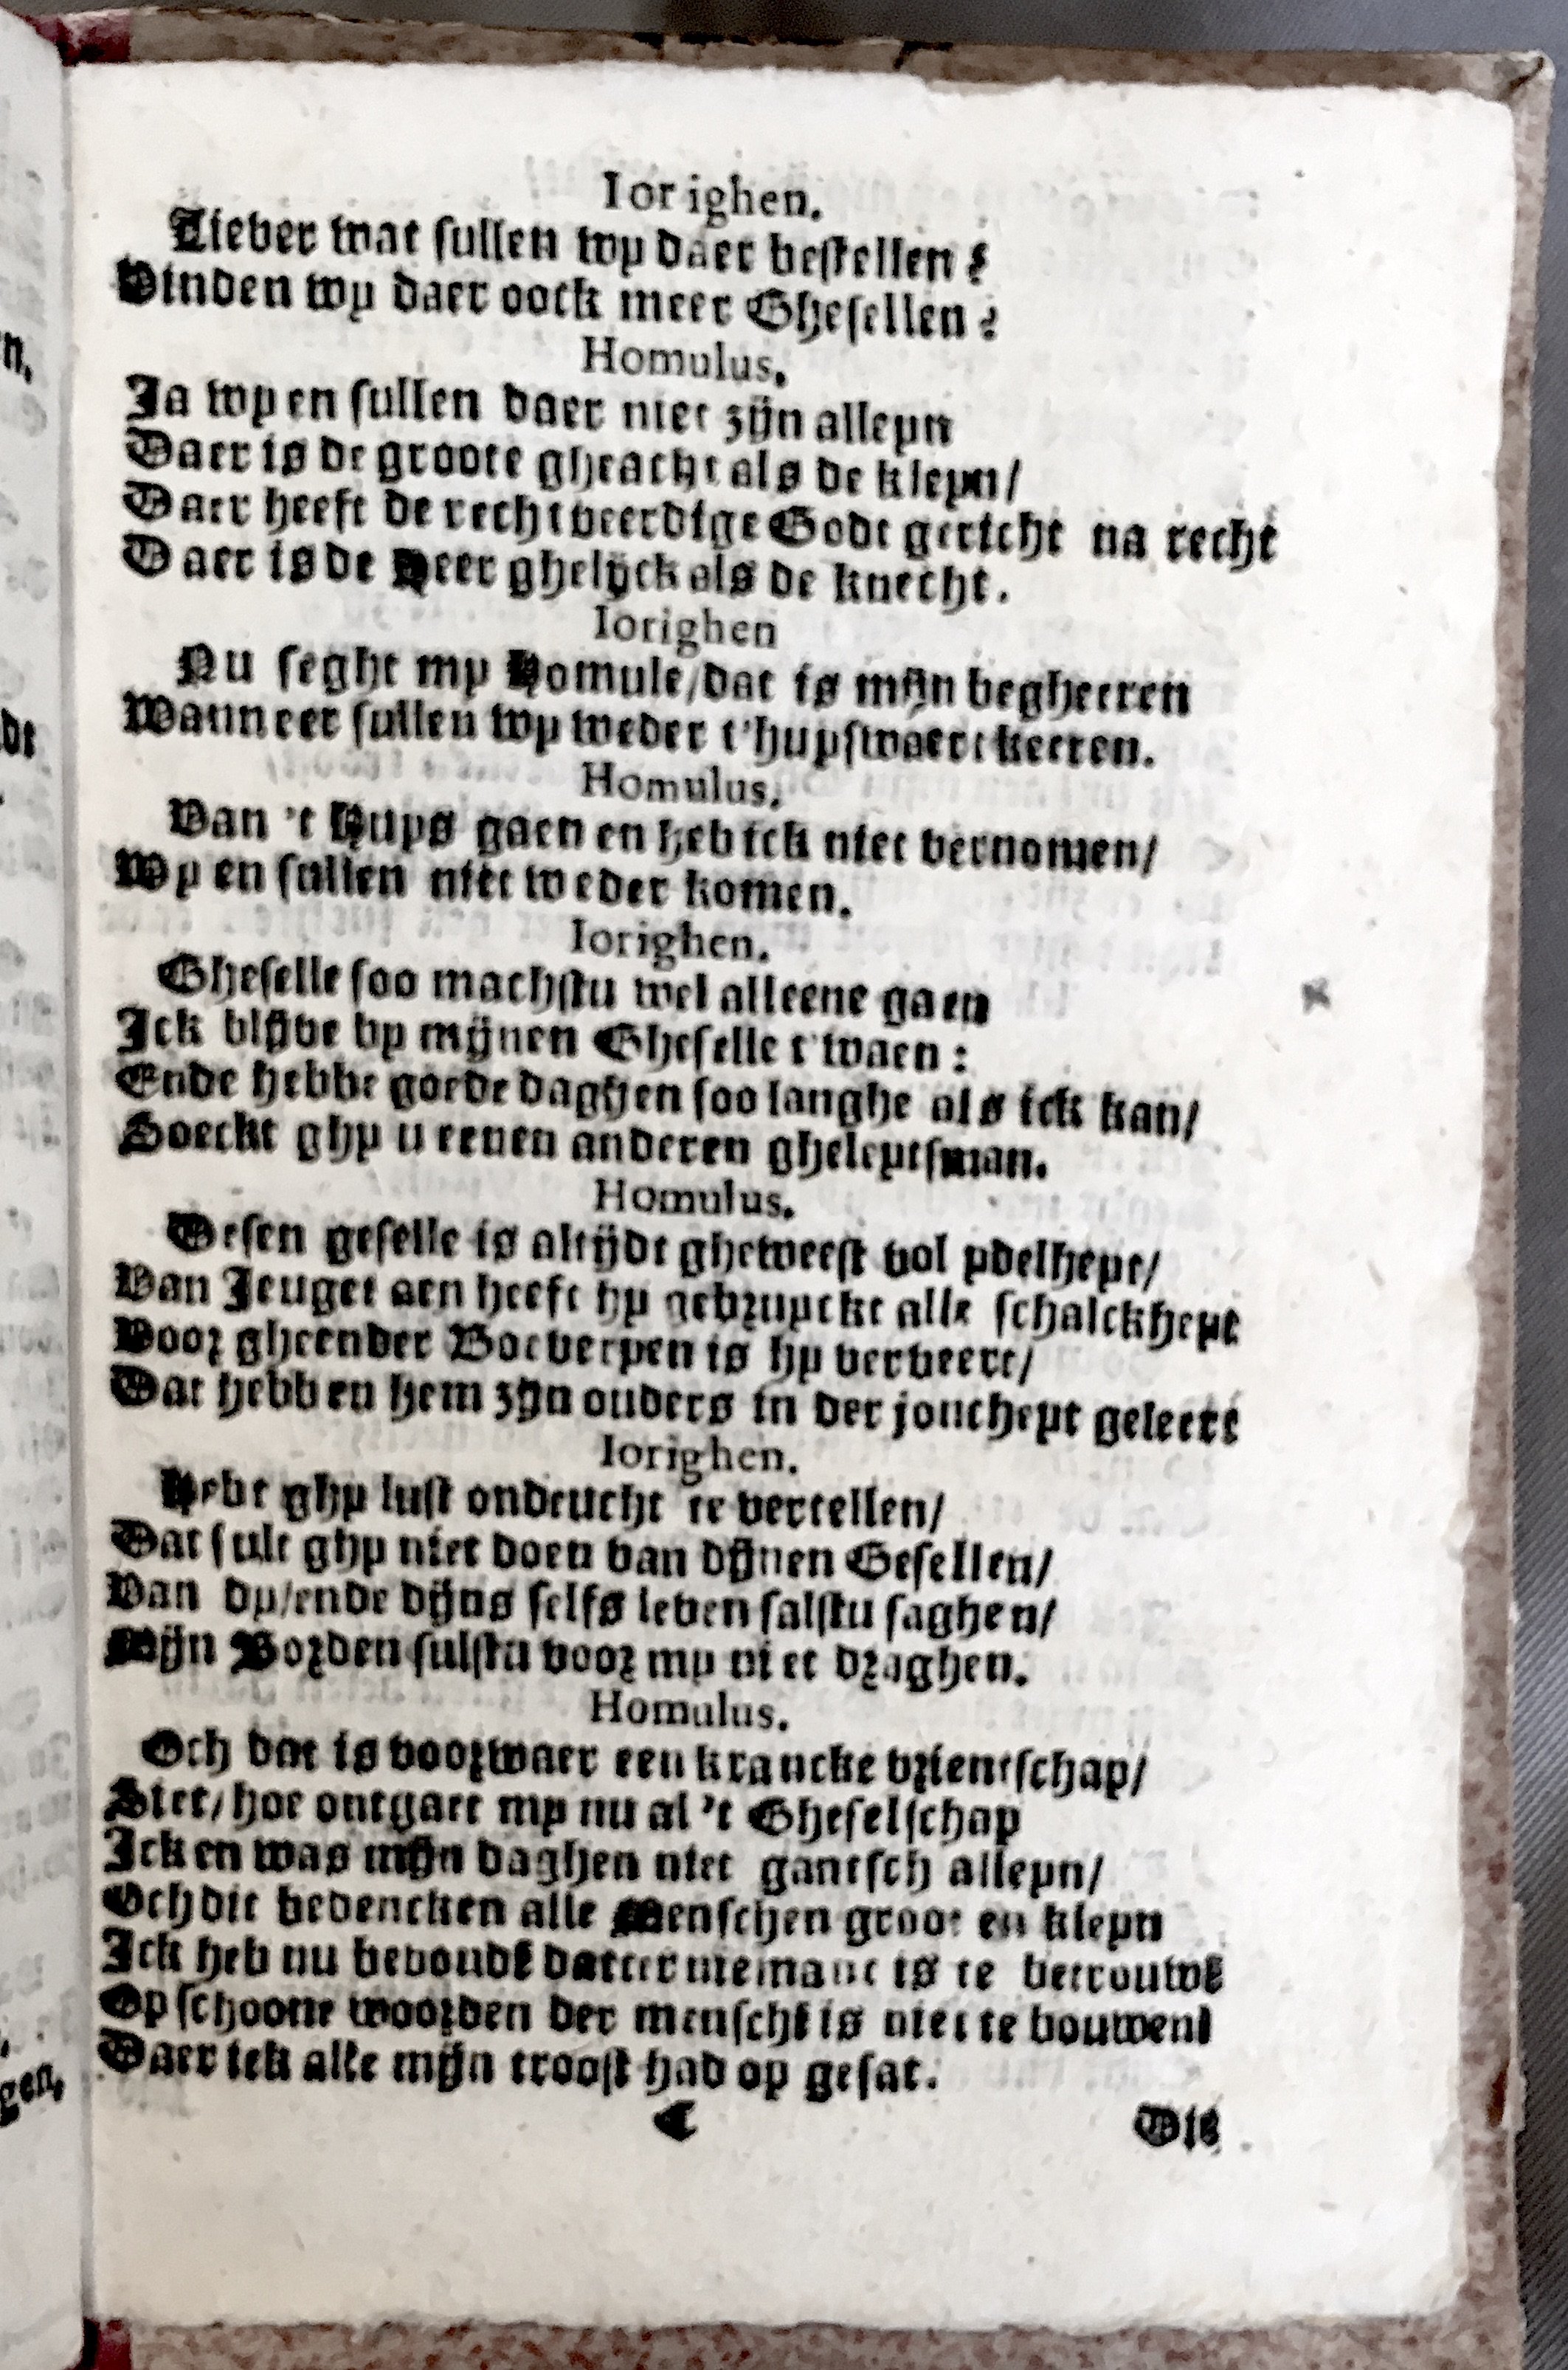 Iorighen.
Lieber wat sullen wy daer bestellen?
Vinden wy daer oock meer Ghesellen?
Homulus.
Ja wy en sullen daer niet zijn alleyn
Daer is de groote gheacht als de kleyn/
Daer heeft de rechtveerdige Godt gericht na recht
Daer is de Heer ghelijck als de knecht.
Iorighen
Nu seght my Homule/dat is mijn begheeren
Wanneer sullen wy weder t'huyswaert keeren.
Homulus.
Van 't Huys gaen en heb ick niet vernomen/
Wy en sullen niet weder komen.
Iorighen.
Gheselle soo machstu wel alleene gaen
Ick blijve by mijnen Gheselle t'waen:
Ende hebbe goede daghen soo langhe als ick kan/
Soeckt ghy u eenen anderen gheleytsman.
Homulus.
Desen geselle is altijdt gheweest vol ydelheyt/
Van Jeuget aen heeft hy gebruyckt alle schalckheyt
Voor gheender Boeveryen is hy verveert/
Dat hebben hem zijn ouders in der joncheyt geleert
Iorighen.
Hebt ghy lust ondeucht te vertellen/
Dat sult ghy niet doen van dijnen Gesellen/
Van dy/ende dijns selfs leven salstu saghen/
Mijn Borden sulstu voor my niet draghen.
Homulus.
Och dat is voorwaer een krancke vrientschap/
Siet/hoe ontgaet my nu al 't Gheselschap
Ick en was mijn daghen niet gantsch alleyn/
Och dit bedencken alle Menschen groot en kleyn
Ick heb nu bevondē datter niemant is te betrouwē
Op schoone woorden der menschē is niet te bouwen/
Daer ick alle mijn troost had op gesat.
Dis